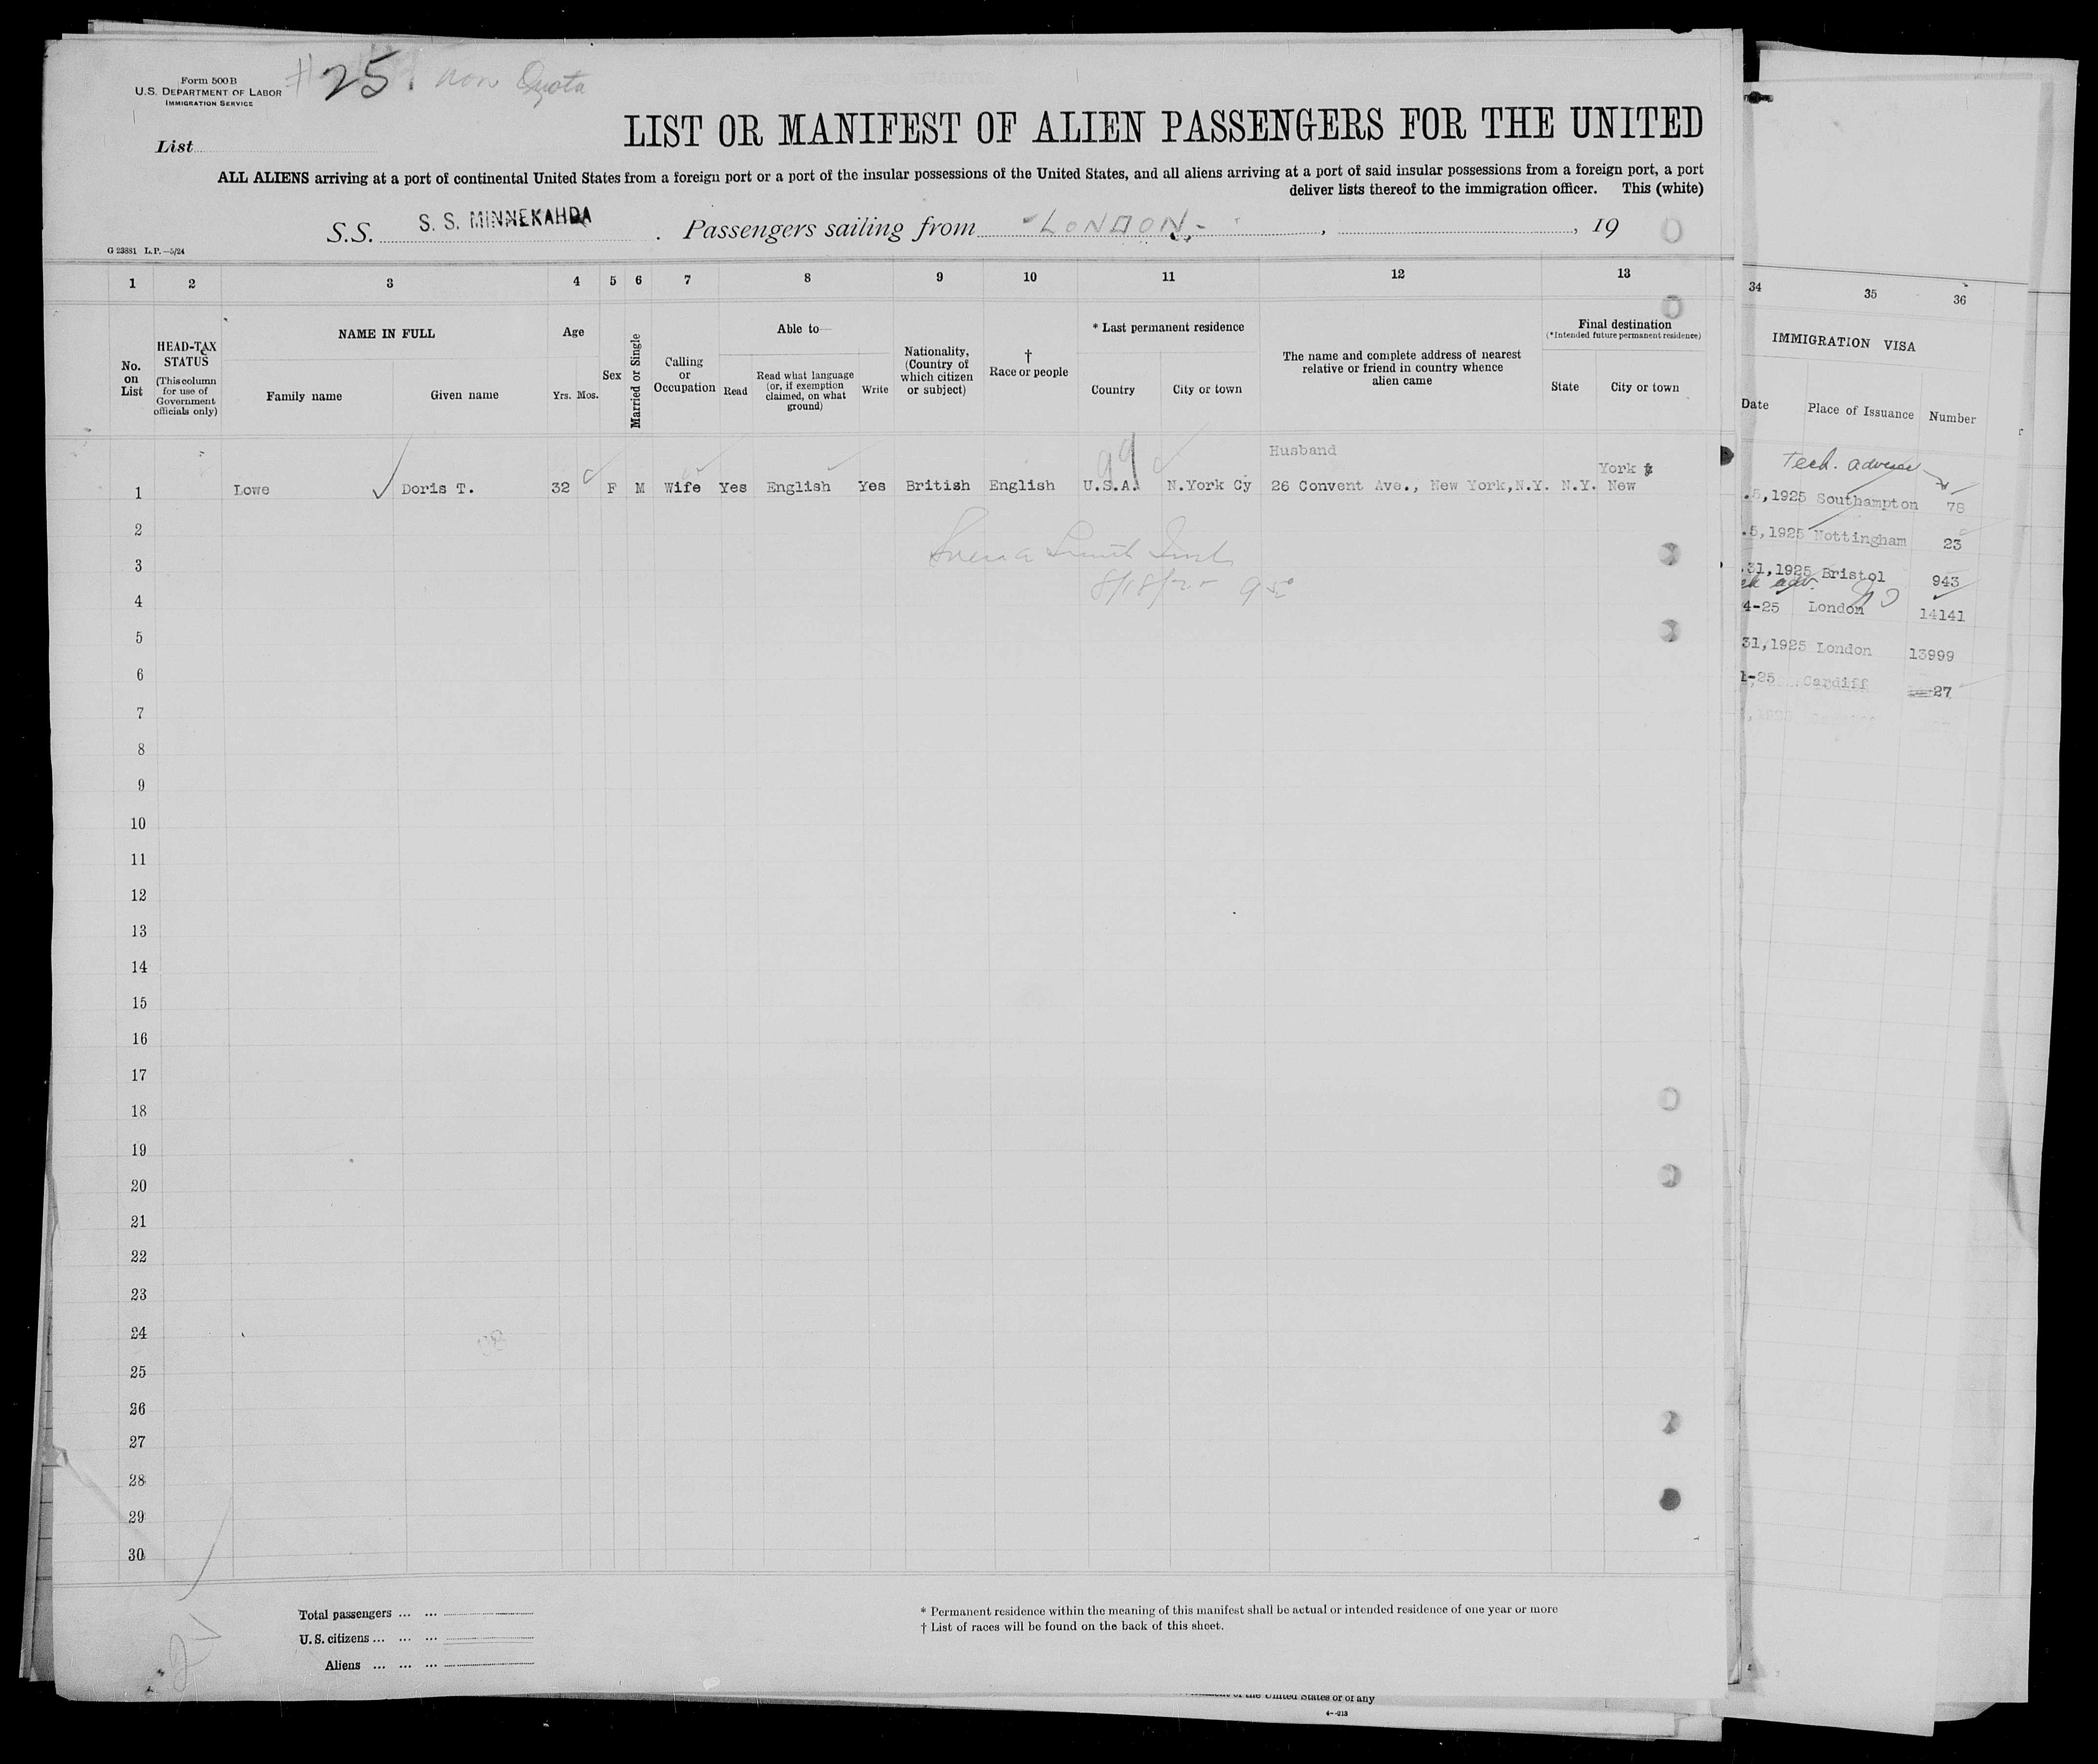 Form 500 B
U.S. DEPARTMENT OF LABOR
IMMIGRATION SERVICE
# 25. non Quota
List
LIST OR MANIFEST OF ALIEN PASSENGERS FOR THE UNITED
ALL ALIENS arriving at a port of continental United States from a foreign port or a port of the insular possessions of the United States, and all aliens arriving at a port of said insular possessions from a foreign port, a port
deliver lists thereof to the immigration officer. This (white)
S.S. S. S. MINNEKAHDA . Passengers sailing from -LONDON.- , , 19
G 23881 L.P.—5/24
1 2 3 4 5 6 7 8 9 10 11 12 13
No. on List
HEAD-TAX STATUS
(This column for use of Government officials only)
NAME IN FULL
Family name
Given name
Age
Yrs. Mos.
Sex
Married or Single
Calling or Occupation
Able to—
Read
Read what language (or, if exemption claimed, on what ground)
Write
Nationality, (Country of which citizen or subject)
† Race or people
* Last permanent residence
Country
City or town
The name and complete address of nearest relative or friend in country whence alien came
Final destination
(*Intended future permanent residence)
State
City or town
99
Husband
York
1 Lowe Doris T. 32 F M Wife Yes English Yes British English U.S.A. N.York Cy 26 Convent Ave., New York,N.Y. N.Y. New
2
3
8/18/25
4
5
6
7
8
9
10
11
12
13
14
15
16
17
18
19
20
21
22
23
24
25
26
27
28
29
30
Total passengers ... ...
U.S. citizens ... ... ...
Aliens ... ... ...
* Permanent residence within the meaning of this manifest shall be actual or intended residence of one year or more
† List of races will be found on the back of this sheet.
of the United States or of any
4—213
34 35 36
IMMIGRATION VISA
Date Place of Issuance Number
Tech. adviser
.5,1925 Southampton 78
.5,1925 Nottingham 23
.31,1925 Bristol 943
4-25 London 14141
31,1925 London 13999
1-25 Cardiff 27